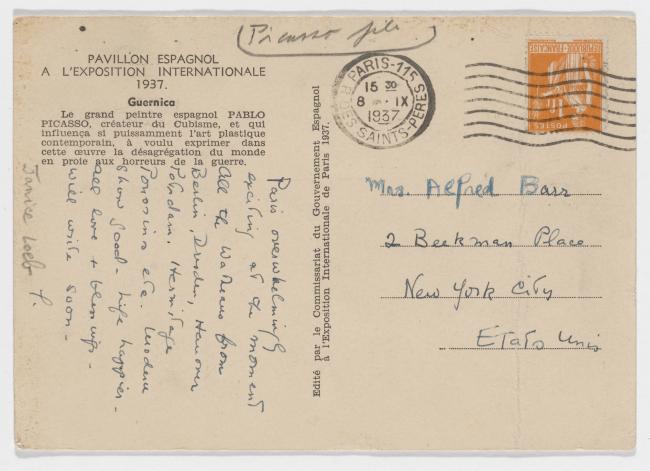 (Picasso file)
PAVILLON ESPAGNOL
A L'EXPOSITION INTERNATIONALE
1937.
Guernica
Le grand peintre espagnol PABLO
PICASSO, créateur du Cubisme, et qui
influença si puissamment l'art plastique
contemporain, à voulu exprimer dans
cette œuvre la désagrégation du monde
en proie aux horreurs de la guerre.
Paris overwhelmingly
exciting at the moment
All the Watteaus from
Berlin, Dresden, Hanover
Potsdam, Hermitage
etc. Modern
show good - Life happier -
All love + blessings -
Will write soon -
Janice Loeb
Edité par le Commissariat du Gouvernement Espagnol
à l'Exposition Internationale de Paris 1937.
PARIS-115
15 30
8 - IX
1937
R. DES SAINTS-PERES
REPUBLIQUE-FRANÇAISE
POSTES
Mrs. Alfred Barr
2 Beekman Place
New York City
Etats Unis